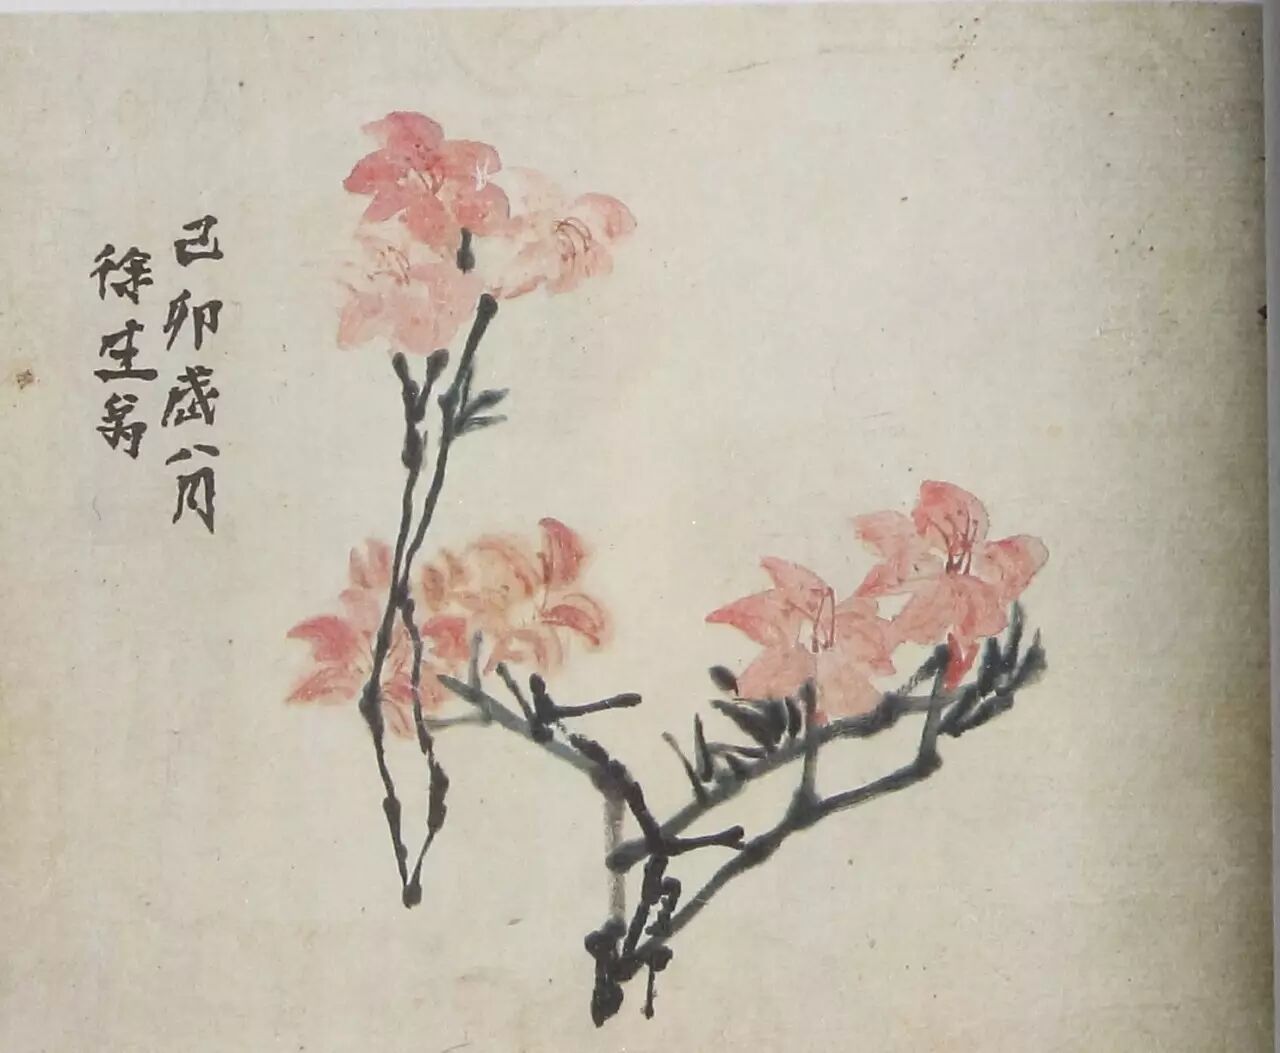 己卯歲八月
徐生翁